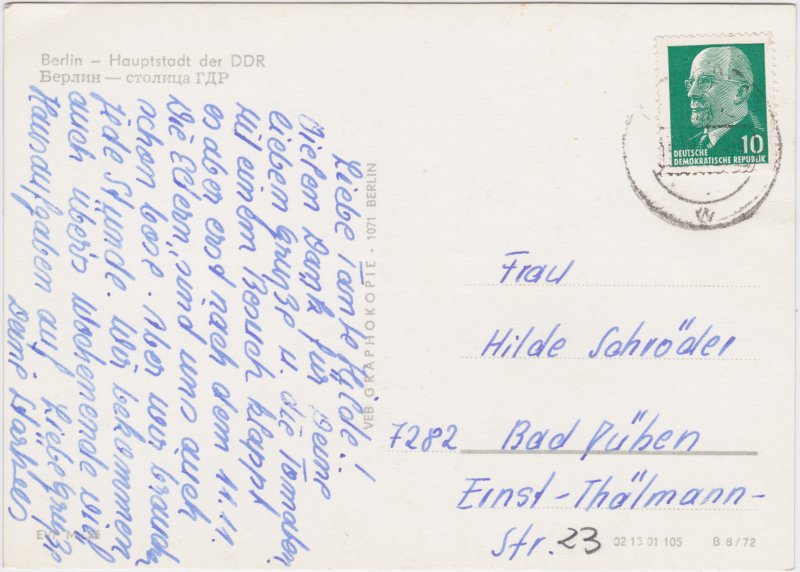 Berlin – Hauptstadt der DDR
Берлин — столица ГДР
Liebe Tante Hilde!
Vielen Dank für Deine
lieben Grüße u. die Tomaten.
Mit einem Besuch klappt
es aber erst nach dem 11.11.
Die Eltern, sind uns auch
schon böse. Aber wir brauchen
jede Stunde. Wir bekommen
auch übers Wochenende viel
Hausaufgaben auf. Liebe Grüße
Deine
VEB GRAPHOKOPIE - 1071 BERLIN
DEUTSCHE
DEMOKRATISCHE REPUBLIK
10
Frau
Hilde Schröder
7282 Bad Düben
Ernst-Thälmann-
Str. 23
02 13 01 105 B 8/72